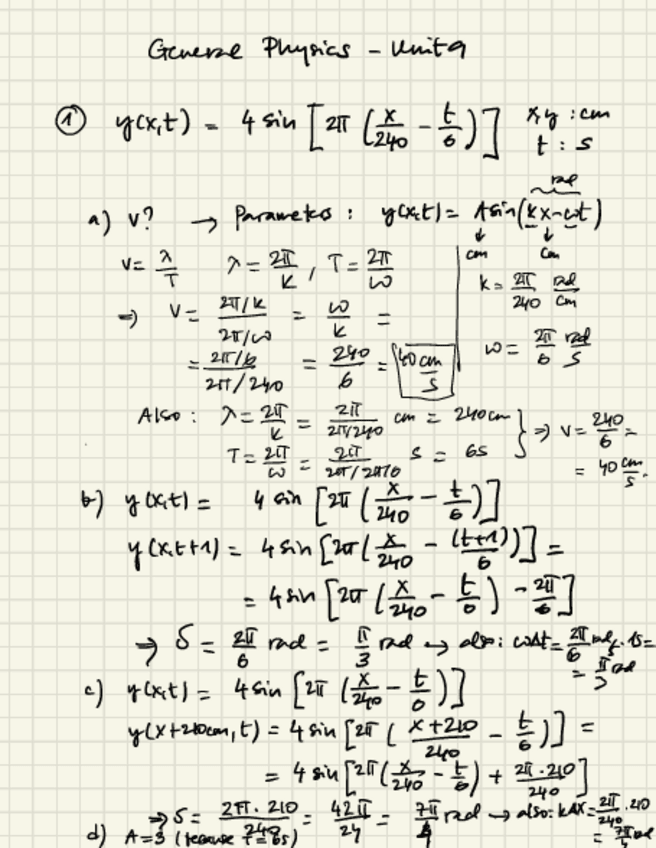 General Physics - Unit 9
① y(x,t) = 4 sin [2π (x/240 - t/6)] x,y : cm
t : s
a) v? → Parameters : y(x,t) = A sin(kx-ωt) rad
cm cm
v = λ/T λ = 2π/k , T = 2π/ω k = 2π/240 rad/cm
⇒ v = (2π/k)/(2π/ω) = ω/k = ω = 2π/6 rad/s
= (2π/6)/(2π/240) = 240/6 = 40 cm/s
Also : λ = 2π/k = 2π/(2π/240) cm = 240 cm } ⇒ v = 240/6 =
T = 2π/ω = s = 6s = 40 cm/s.
b) y(x,t) = 4 sin [2π (x/240 - t/6)]
y(x,t+1) = 4 sin [2π (x/240 - (t+1)/6)] =
= 4 sin [2π (x/240 - t/6) - 2π/6]
⇒ δ = 2π/6 rad = π/3 rad → also: ωΔt = 2π/6 rad/s · 1s =
= π/3 rad
c) y(x,t) = 4 sin [2π (x/240 - t/6)]
y(x+210cm, t) = 4 sin [2π (x+210/240 - t/6)] =
= 4 sin [2π (x/240 - t/6) + 2π·210/240]
⇒ δ = 2π·210/240 = 42π/24 = 7π/4 rad → also: kΔx = 2π/240 · 210
= 7π/4 rad
d) A=3 (because T=6s)